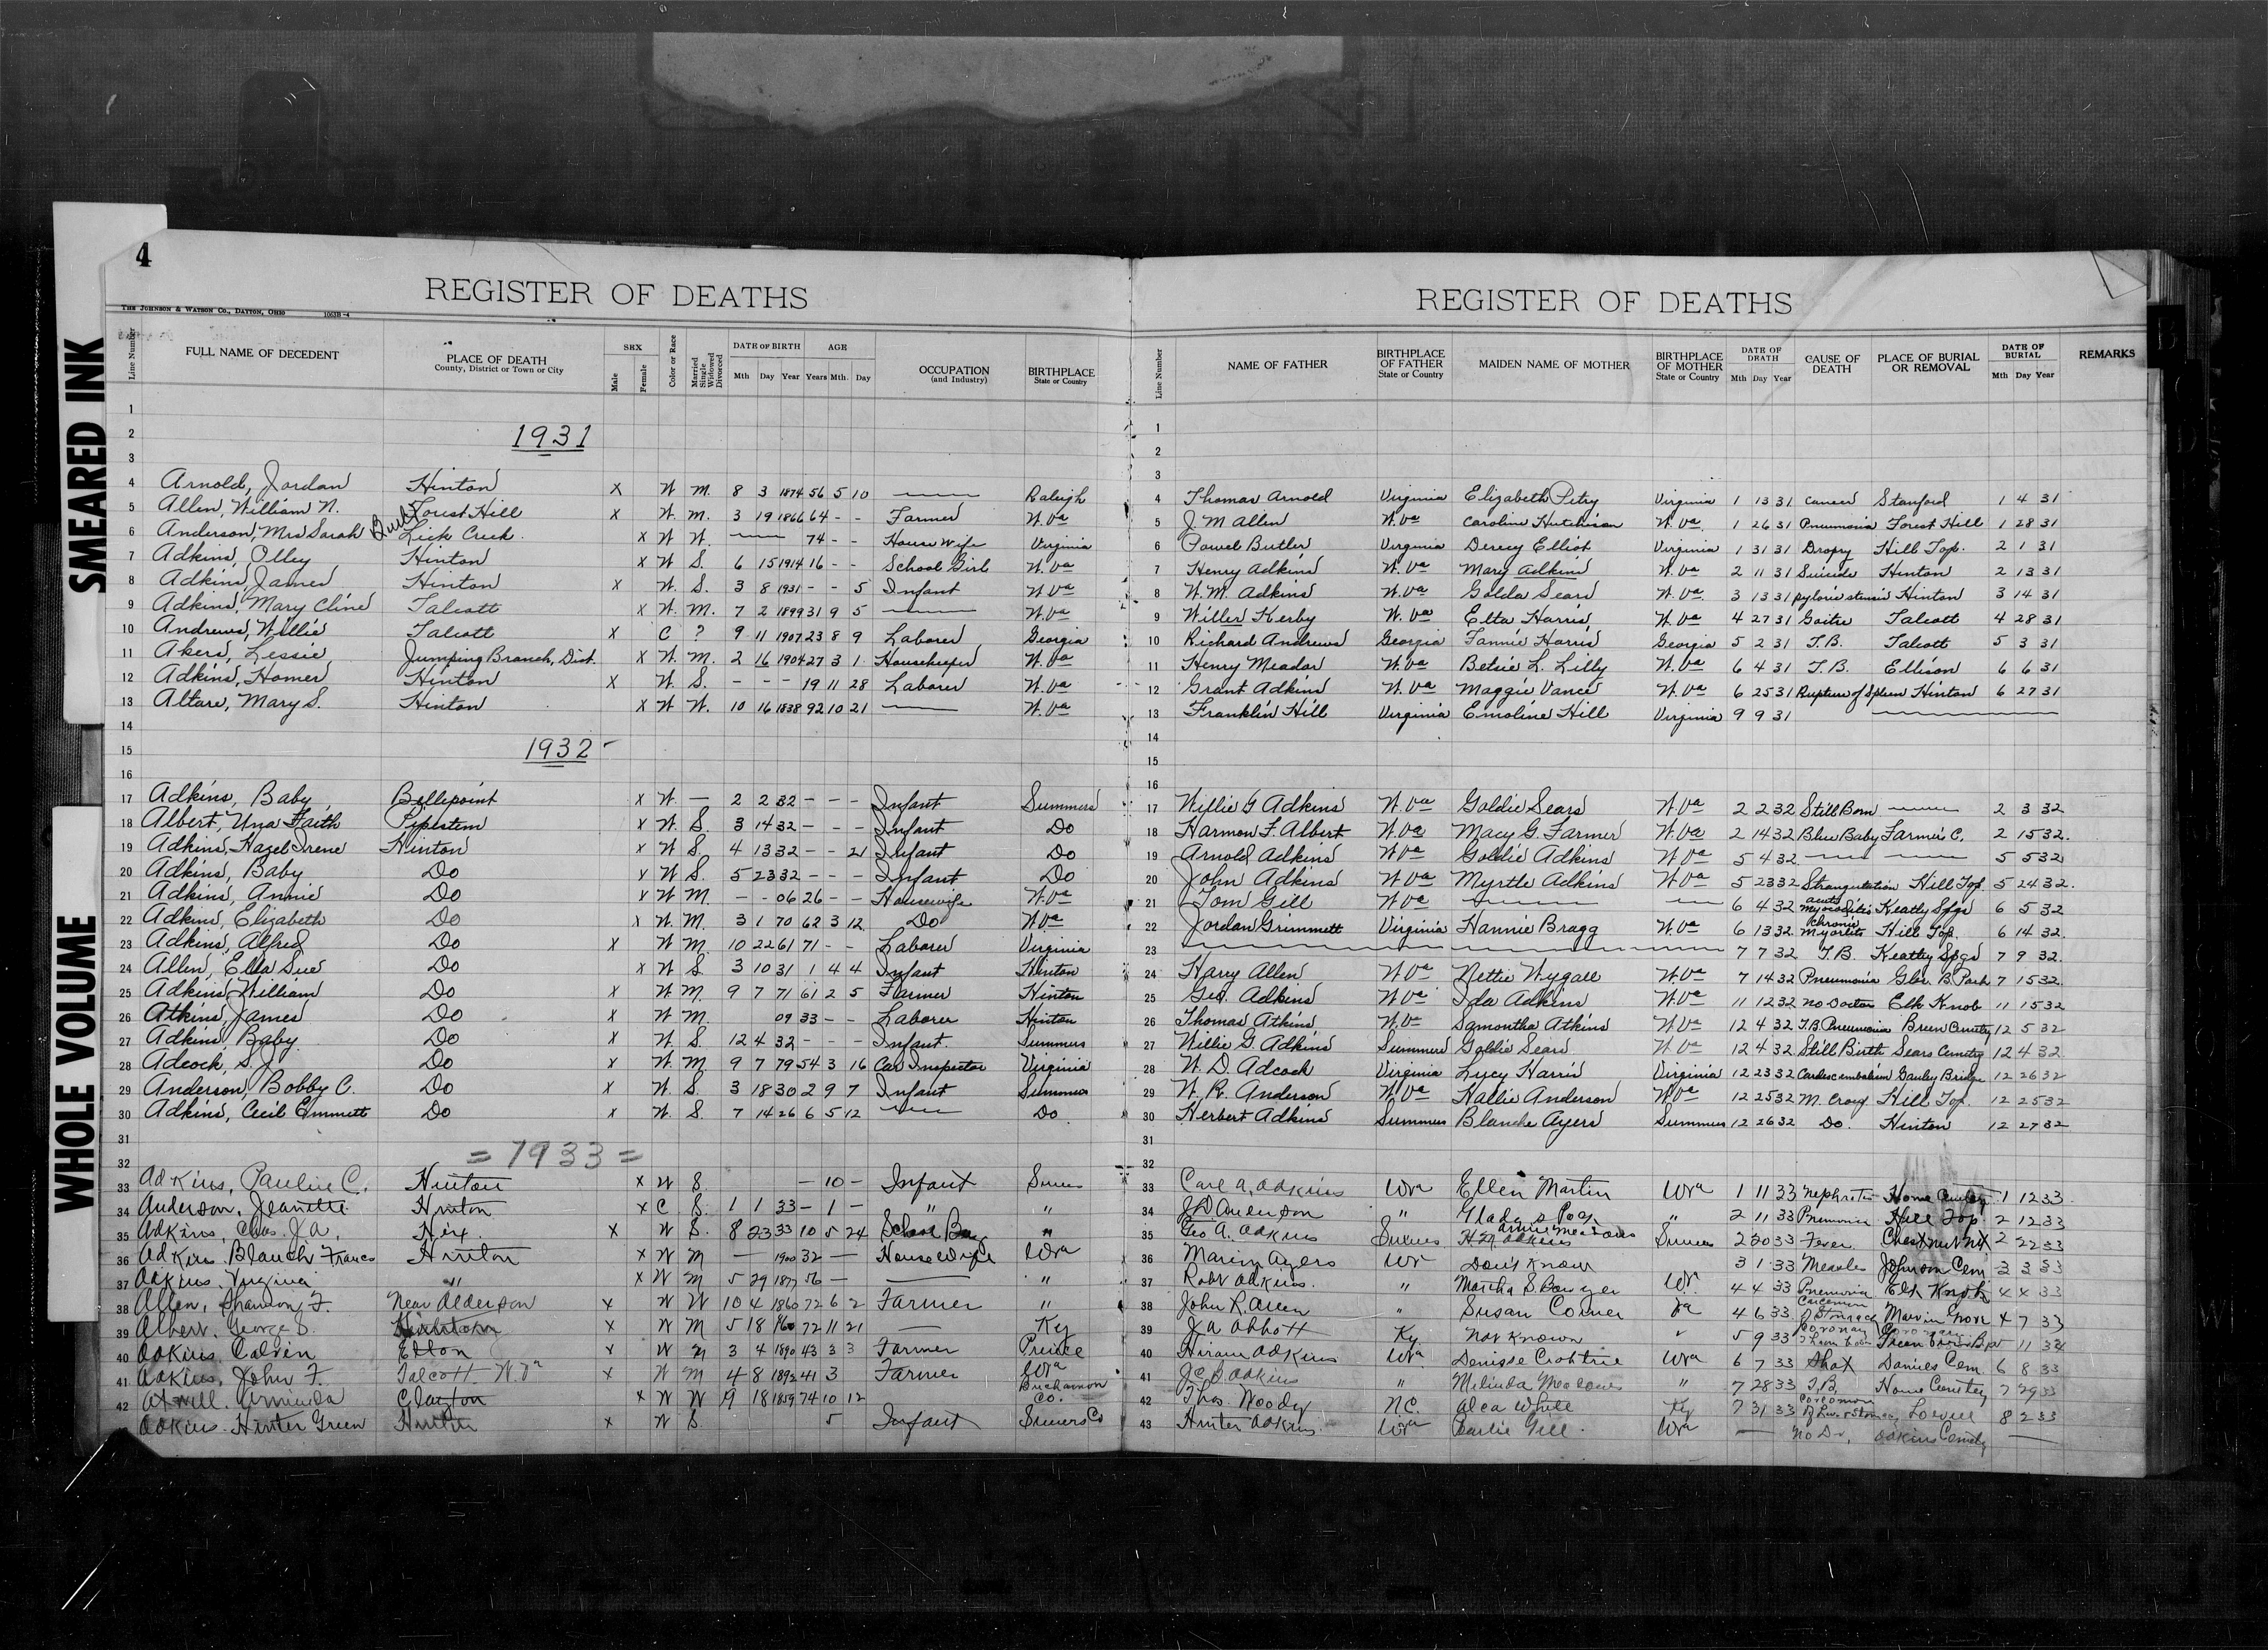 4
SMEARED INK
WHOLE VOLUME
REGISTER OF DEATHS
THE JOHNSON & WATSON CO., DAYTON, OHIO 1063B-4
Line Number FULL NAME OF DECEDENT PLACE OF DEATH County, District or Town or City SEX Male Female Color or Race Married Single Widowed Divorced DATE OF BIRTH Mth Day Year AGE Years Mth. Day OCCUPATION (and Industry) BIRTHPLACE State or Country
1
2 1931
3
4 Arnold, Jordan Hinton X W M. 8 3 1874 56 5 10 Raleigh
5 Allen, William N. Forest Hill X W. M. 3 19 1866 64 - - Farmer W.Va
6 Anderson, Mrs Sarah Lick Creek. X W W. 74 - - House wife Virginia
7 Adkins, Olley Hinton X W S. 6 15 1914 16 - - School Girl W.Va
8 Adkins, James Hinton X W. S. 3 8 1931 - - 5 Infant W Va
9 Adkins, Mary Cline Talcott X W. M. 7 2 1899 31 9 5 W.Va
10 Andrews, Willie Talcott X C ? 9 11 1907 23 8 9 Laborer Georgia
11 Akers, Lessie Jumping Branch, Dist. X W. M. 2 16 1904 27 3 1 Housekeeper W.Va
12 Adkins, Homer Hinton X W. S. - - - 19 11 28 Laborer W.Va
13 Altare, Mary S. Hinton X W W. 10 16 1838 92 10 21 W.Va
14
15 1932
16
17 Adkins, Baby Bellepoint X W. — 2 2 32 - - - Infant Summers
18 Albert, Una Faith Pipestem X W. S. 3 14 32 - - - Infant Do
19 Adkins, Hazel Irene Hinton X W S. 4 13 32 - - 21 Infant Do
20 Adkins, Baby Do X W S. 5 23 32 - - - Infant Do
21 Adkins, Annie Do X W M. - - 06 26 - - Housewife W.Va
22 Adkins, Elizabeth Do X W. M. 3 1 70 62 3 12 Do W Va
23 Adkins, Alfred Do X W M. 10 22 61 71 - - Laborer Virginia
24 Allen, Ella Sue Do X W S. 3 10 31 1 4 4 Infant Hinton
25 Adkins, William Do X W. M. 9 7 71 61 2 5 Farmer Hinton
26 Atkins, James Do X W. M. 09 33 - - Laborer Hinton
27 Adkins, Baby Do X W. S. 12 4 32 - - - Infant. Summers
28 Adcock, S.J. Do X W. M. 9 7 79 54 3 16 Car Inspector Virginia
29 Anderson, Bobby C. Do X W. S. 3 18 30 2 9 7 Infant Summers
30 Adkins, Cecil Emmett Do X W. S. 7 14 26 6 5 12 Do
31
32 = 1933 =
33 Adkins, Pauline C. Hinton X W S. - 10 - Infant
34 Anderson, Jeanette Hinton X C S. 1 1 33 - 1 - " "
35 Adkins, Chas. J.A. Hix. X W S. 8 23 33 10 5 24 School Boy "
36 Adkins Blanch Frances Hinton X W M — 1900 32 — House wife Wva
37 Adkins, Virginia " X W M 5 29 1877 56 — "
38 Allen, F. Near Alderson X W W 10 4 1860 72 6 2 Farmer "
39 Albert, George S. X W M 5 18 1860 72 11 21 — Ky
40 Adkins, Calvin Elton X W M 3 4 1890 43 3 3 Farmer Prince
41 Adkins, John F. Talcott W.Va X W M 4 8 1892 41 3 Farmer Wva
42 Atwell, Arminda Clayton X W W 9 18 1859 74 10 12 Buchannon Co.
Adkins, Hinter Green Hinton X W S. 5 Infant Summers Co
REGISTER OF DEATHS
Line Number NAME OF FATHER BIRTHPLACE OF FATHER State or Country MAIDEN NAME OF MOTHER BIRTHPLACE OF MOTHER State or Country DATE OF DEATH Mth Day Year CAUSE OF DEATH PLACE OF BURIAL OR REMOVAL DATE OF BURIAL Mth Day Year REMARKS
1
2
3
4 Thomas Arnold Virginia Elizabeth Petry Virginia 1 13 31 Cancer Stanford 1 4 31
5 J.M Allen W.Va Caroline Hutchison W.Va 1 26 31 Pneumonia Forest Hill 1 28 31
6 Powel Butler Virginia Derecy Elliot Virginia 1 31 31 Dropsy Hill Top. 2 1 31
7 Henry Adkins W.Va Mary Adkins W.Va 2 11 31 Suicide Hinton 2 13 31
8 W.M. Adkins W.Va Golda Sears W.Va. 3 13 31 Hinton 3 14 31
9 Willer Kerby W.Va Elta Harris W.Va 4 27 31 Goitre Talcott 4 28 31
10 Richard Andrews Georgia Fannie Harris Georgia 5 2 31 T.B. Talcott 5 3 31
11 Henry Meador W.Va Betsie L. Lilly W.Va 6 4 31 T.B. Ellison 6 6 31
12 Grant Adkins W.Va Maggie Vance W.Va 6 25 31 Rupture of Spleen Hinton 6 27 31
13 Franklin Hill Virginia Emoline Hill Virginia 9 9 31
14
15
16
17 Willie G Adkins W.Va Goldie Sears W.Va 2 2 32 Still Born 2 3 32
18 Harmon F. Albert W.Va Macy G. Farmer W.Va 2 14 32 Blue Baby Farmer's C. 2 15 32.
19 Arnold Adkins W.Va Goldie Adkins W.Va 5 4 32 5 5 32
20 John Adkins W.Va Myrtle Adkins W.Va 5 23 32 Strangulation Hill Top. 5 24 32.
21 Tom Gill W.Va 6 4 32 acute Myocoditis Keatly Spgs 6 5 32
22 Jordan Grimmett Virginia Hannie Bragg W.Va 6 13 32 chronic Hill Top. 6 14 32.
23 7 7 32 T.B. Keatley Spgs 7 9 32.
24 Harry Allen W.Va Nettie Wygall W.Va 7 14 32 Pneumonia 7 15 32.
25 Geo. Adkins W.Va Ida Adkins W.Va 11 12 32 No Doctor Elk Knob 11 15 32
26 Thomas Atkins W.Va Samontha Atkins W.Va 12 4 32 T.B. Pneumonia Breen Cemetery 12 5 32
27 Willie G. Adkins Summers Goldie Sears W Va 12 4 32 Still Birth Sears Cemetery 12 4 32
28 W.D. Adcock Virginia Lucy Harris Virginia 12 23 32 Gauley Bridge 12 26 32
29 W.R. Anderson W.Va Hallie Anderson W.Va 12 25 32 M. Croup Hill Top. 12 25 32
30 Herbert Adkins Summers Blanche Ayers Summers 12 26 32 Do. Hinton 12 27 32
31
32
33 Carl A. Adkins Wva Ellen Martin Wva 1 11 33 Nephritis Home Cemetery 1 12 33
34 J D Anderson " " 2 11 33 Pnemonia Hill Top 2 12 33
35 Geo A. Adkins Annie Meadows 2 20 33 Fever Chestnut Mt 2 22 33
36 Marion Ayers Wv Don't Know 3 1 33 Measles Johnson Cem 3 3 33
37 Robt Adkins. " Martha S. Bowyer Wv 4 4 33 Pnemonia Elk Knob 4 4 33
38 John R. Allen " Susan Comer Va 4 6 33 4 7 33
39 J.A Abbott Ky. Not Known " 5 9 33 5 11 33
40 Hiram Adkins Wva. Denisse Crabtrie Wva 6 7 33 Shot Daniels Cem 6 8 33
41 J.C.D. Adkins " Melinda Meadows " 7 28 33 T.B. Home Cemetery 7 29 33
42 Thos. Woody N.C. Alca White Ky 7 31 33 8 2 33
43 Hinter Adkins. Wva Pearlie Gill. Wva — No Dr. Adkins Cemetery —